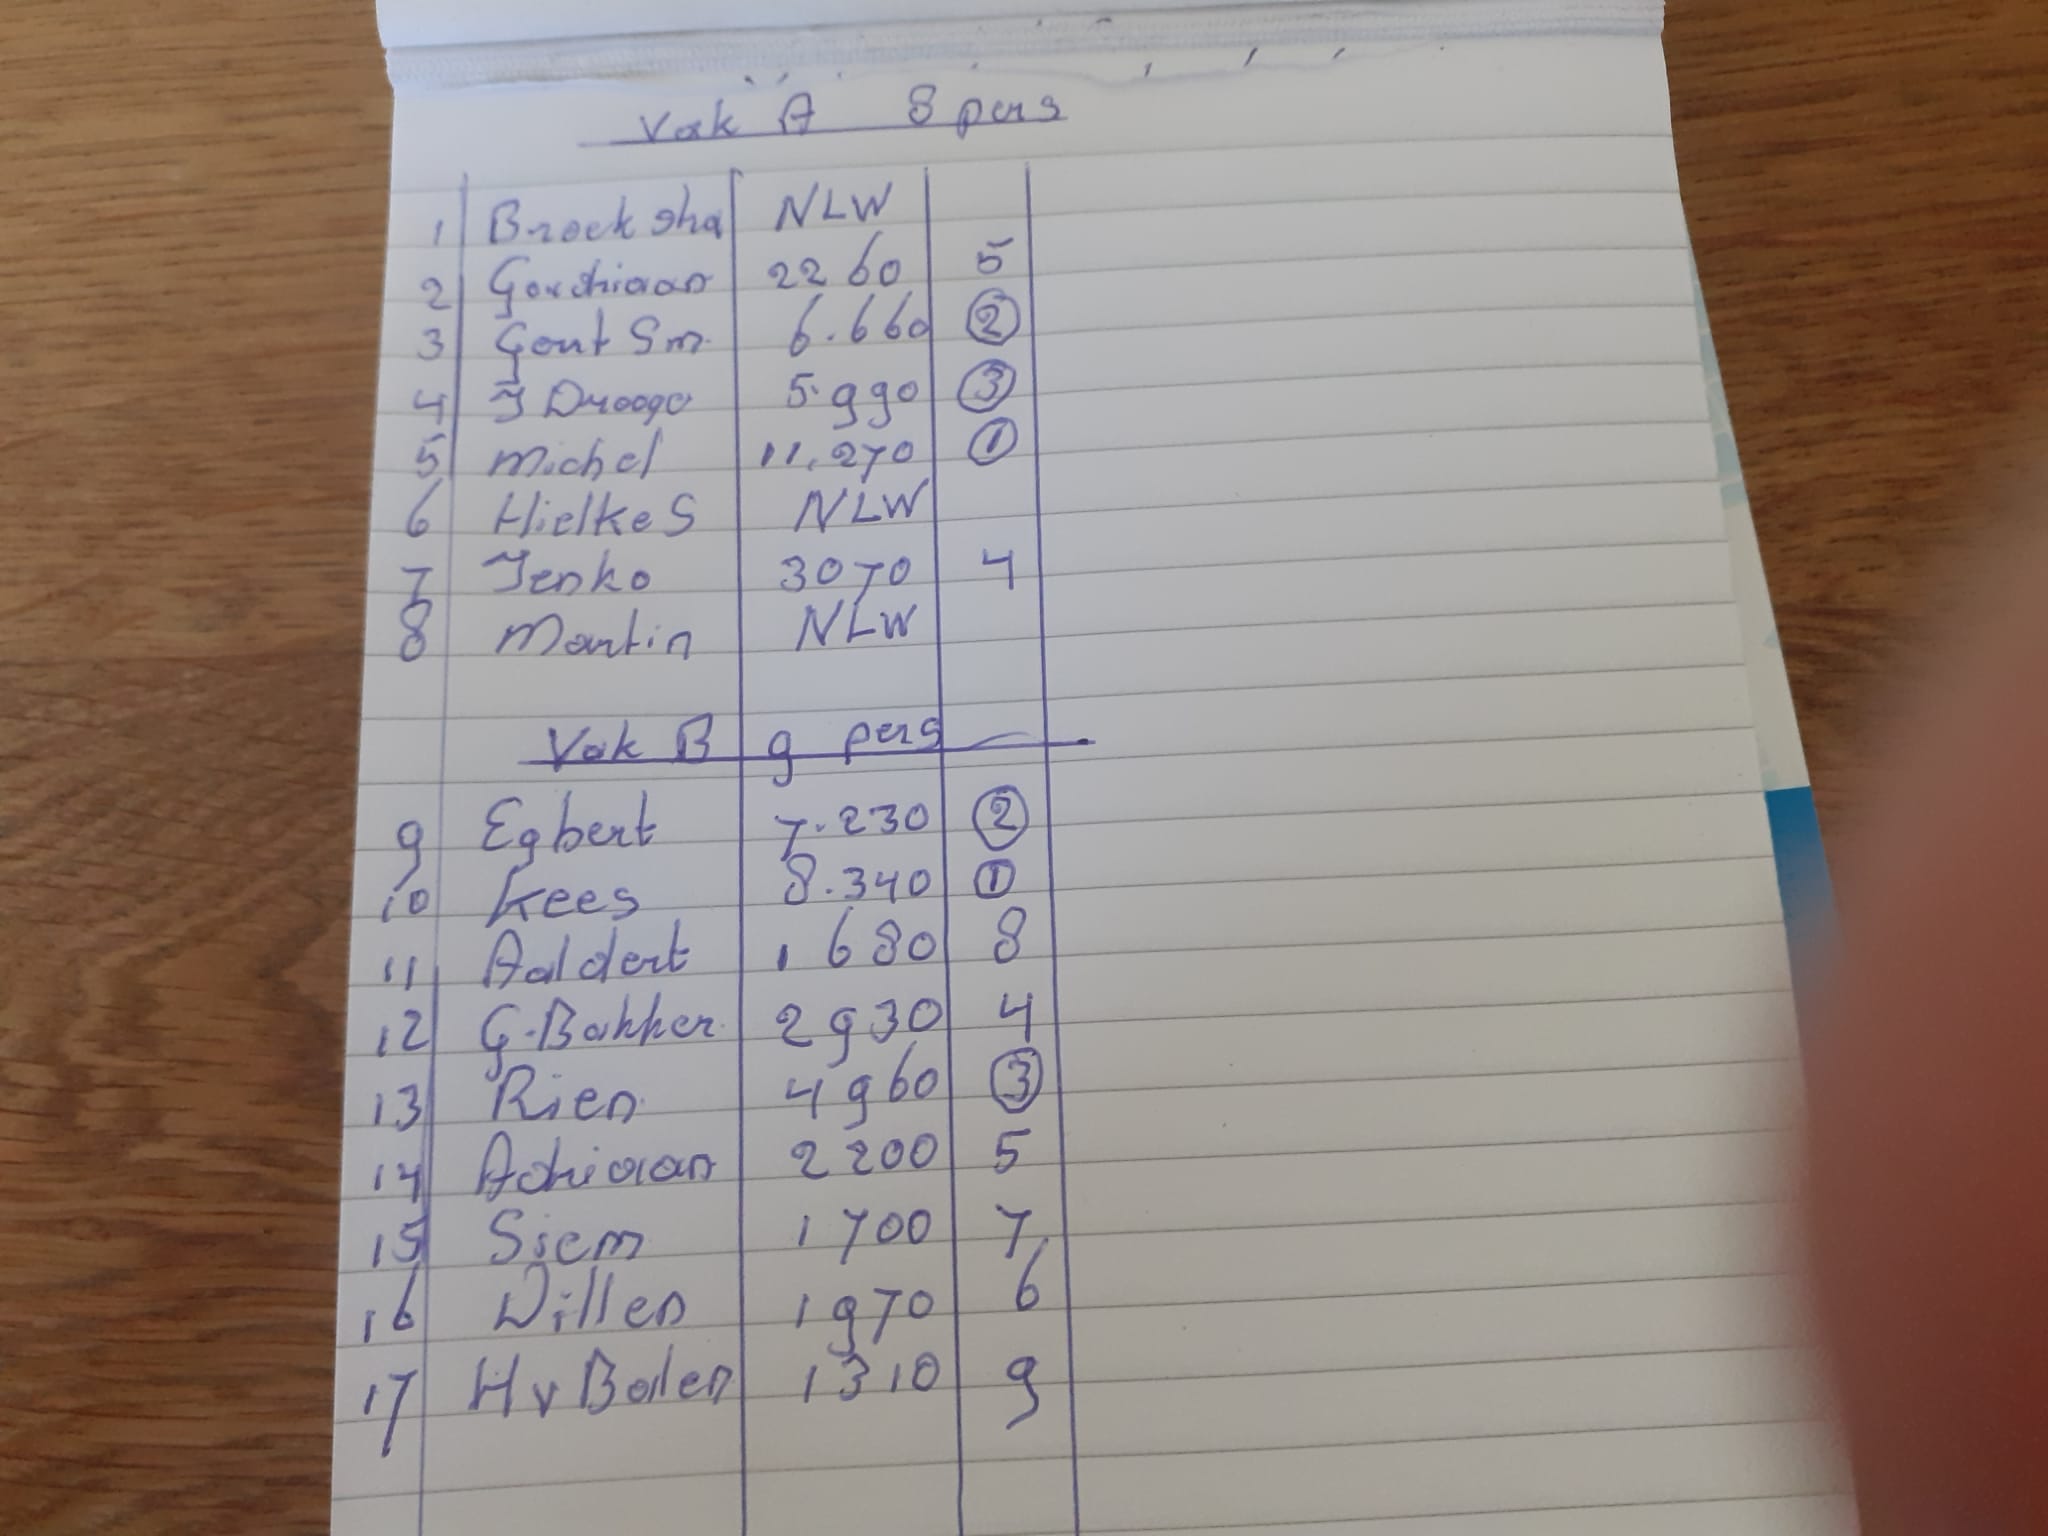 Vak A 8 pers
1 Broeksha NLW
2 Gerdriaan 2260 5
3 Gert Sm. 6.660 2
4 J Drooge 5.990 3
5 Michel 11.270 1
6 Hielke S NLW
7 Jenko 3070 4
8 Martin NLW
Vak B 9 pers
9 Egbert 7.230 2
10 Kees 8.340 1
11 Aaldert 1680 8
12 G. Bakker 2930 4
13 Rien 4960 3
14 Adriaan 2200 5
15 Siem 1700 7
16 Willen 1970 6
17 H v Balen 1310 9